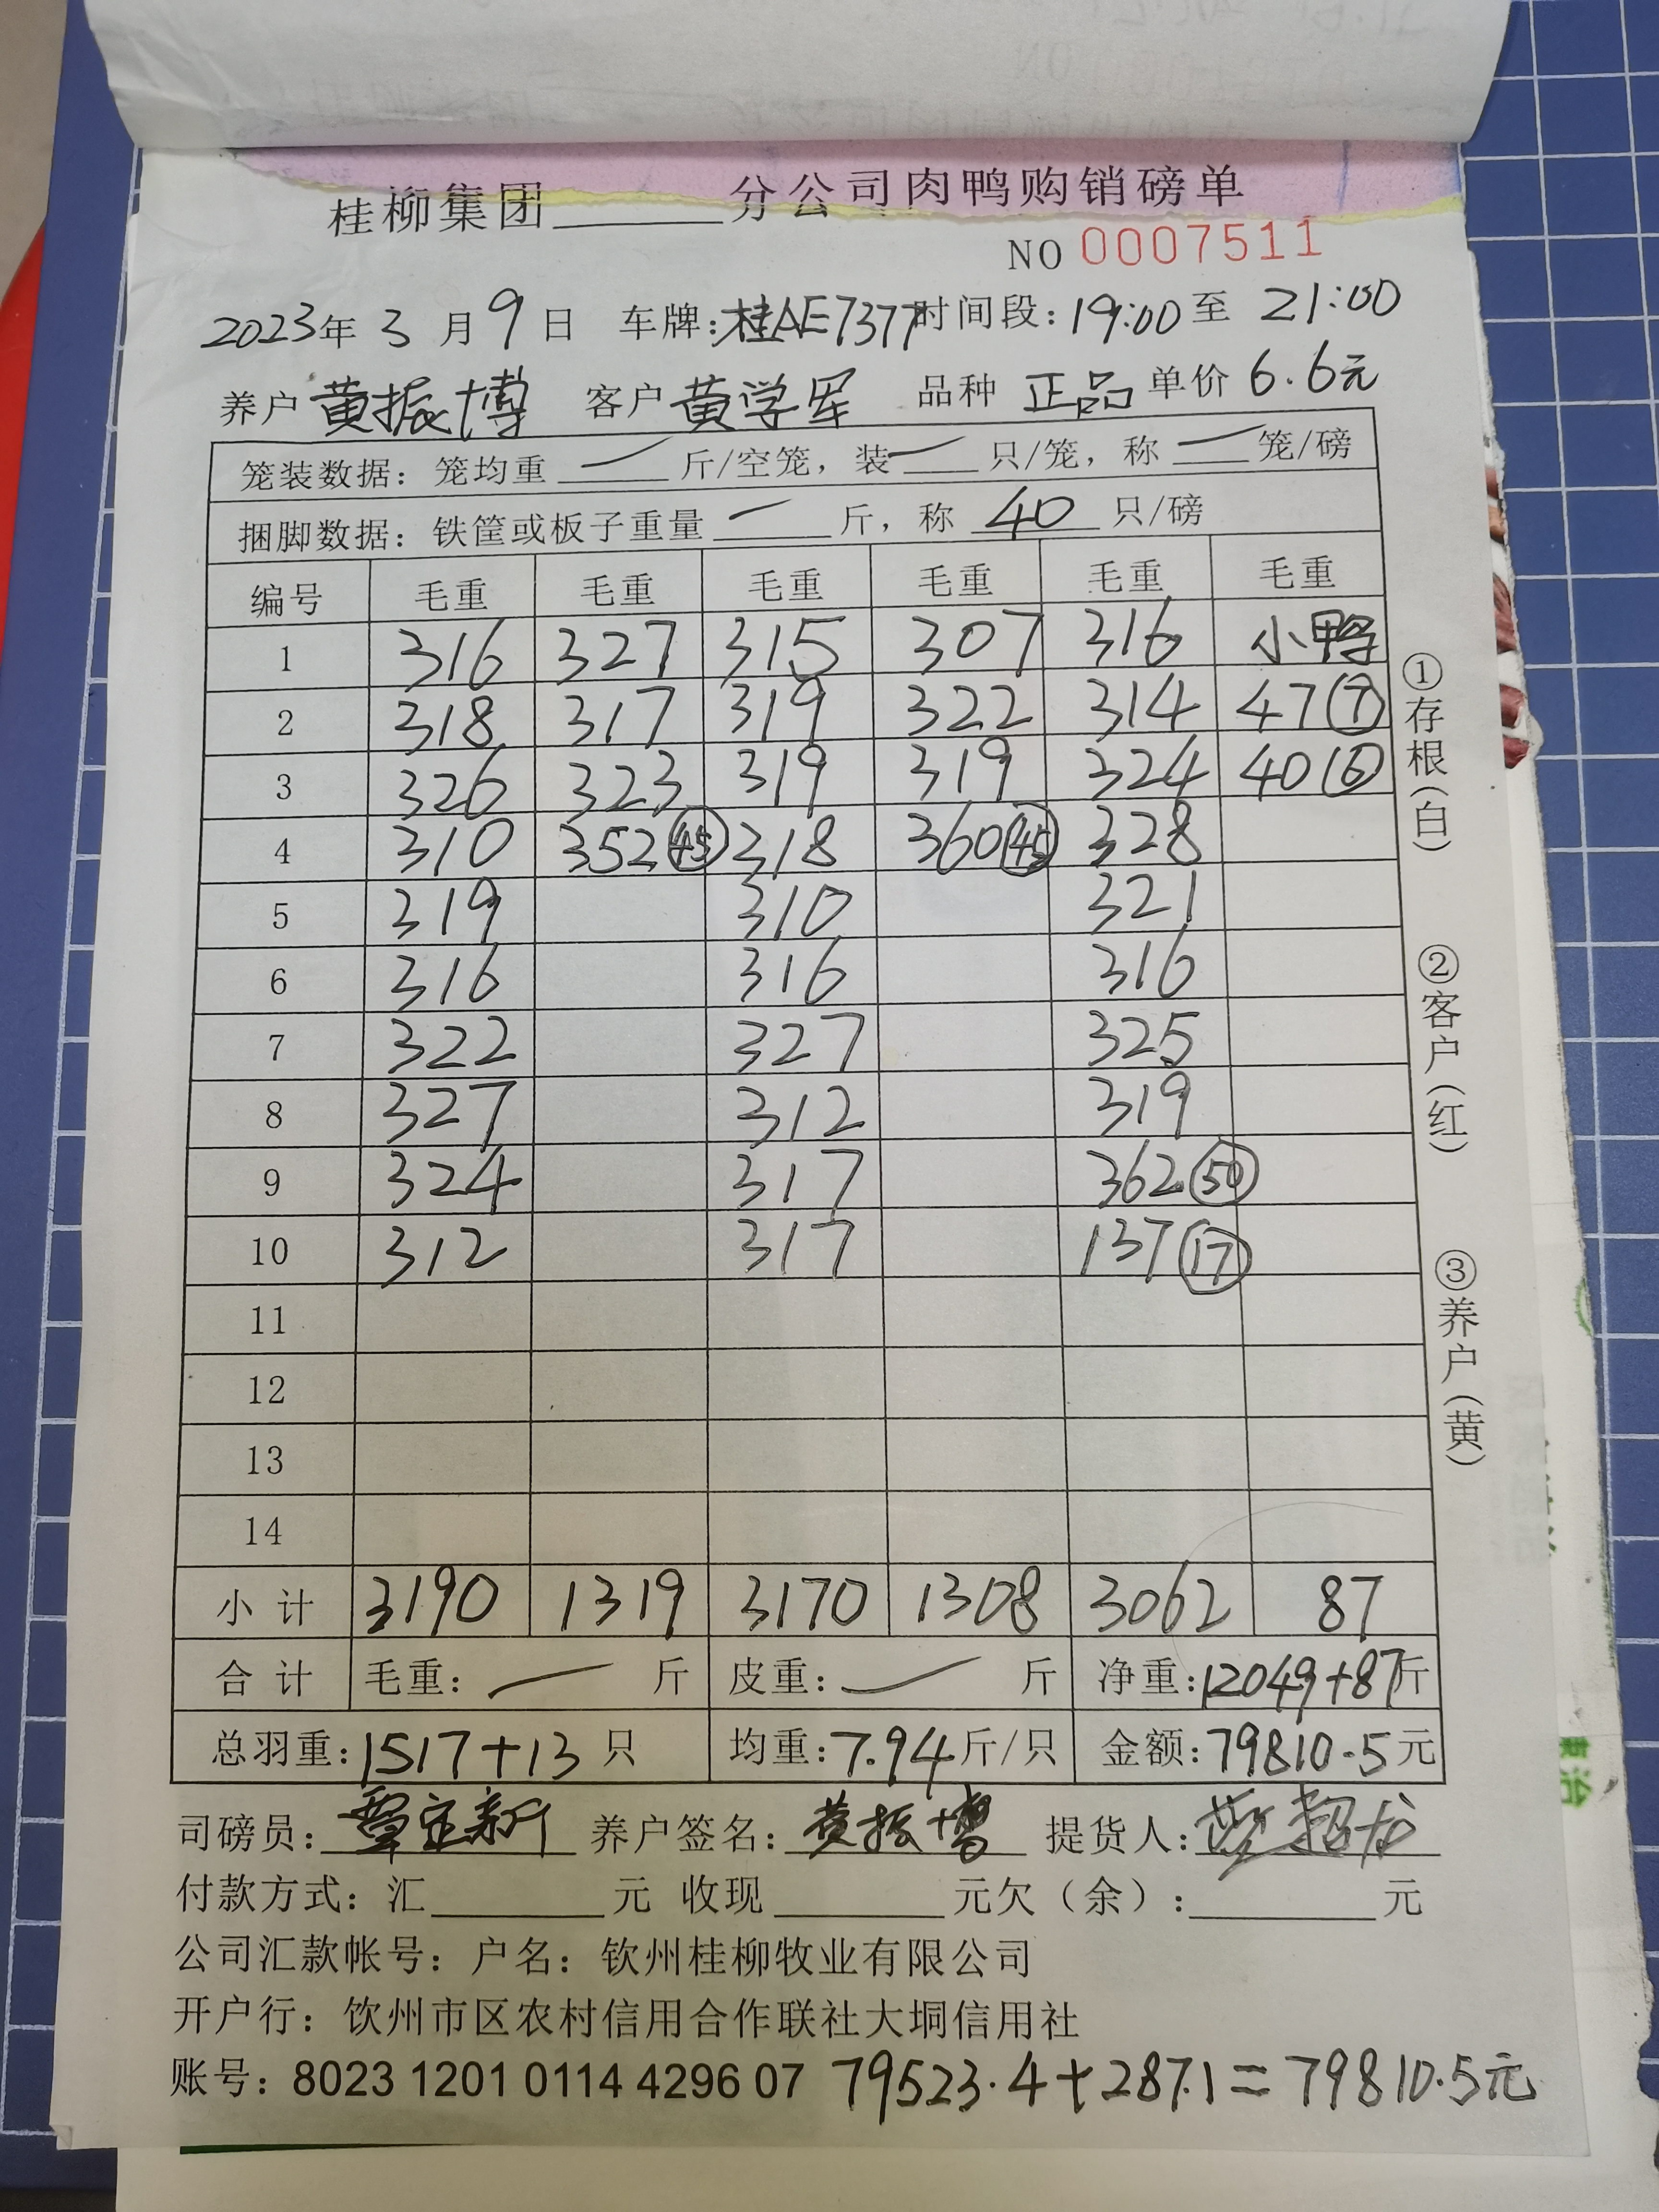 桂柳集团______分公司肉鸭购销磅单
NO 0007511
2023年 3 月 9 日 车牌:桂AE7377 时间段:19:00 至 21:00
养户 黄振博 客户 黄学军 品种 正品 单价 6.6元
笼装数据: 笼均重 一 斤/空笼, 装 一 只/笼, 称 一 笼/磅
捆脚数据: 铁筐或板子重量 一 斤, 称 40 只/磅
编号 毛重 毛重 毛重 毛重 毛重 毛重
1 316 327 315 307 316 小鸭
2 318 317 319 322 314 47⑦
3 326 323 319 319 324 40⑥
4 310 352㊺ 318 360㊺ 328
5 319 310 321
6 316 316 316
7 322 327 325
8 327 312 319
9 324 317 362㊿
10 312 317 137⑰
11
12
13
14
小计 3190 1319 3170 1308 3062 87
合计 毛重: 一 斤 皮重: 一 斤 净重:12049+87斤
总羽重:1517+13 只 均重:7.94斤/只 金额:79810.5元
司磅员: 覃定新 养户签名: 黄振博 提货人:
付款方式: 汇______元 收现______元欠(余):______元
公司汇款帐号: 户名: 钦州桂柳牧业有限公司
开户行: 钦州市区农村信用合作联社大垌信用社
账号: 8023 1201 0114 4296 07 79523.4+287.1=79810.5元
①存根(白)
②客户(红)
③养户(黄)